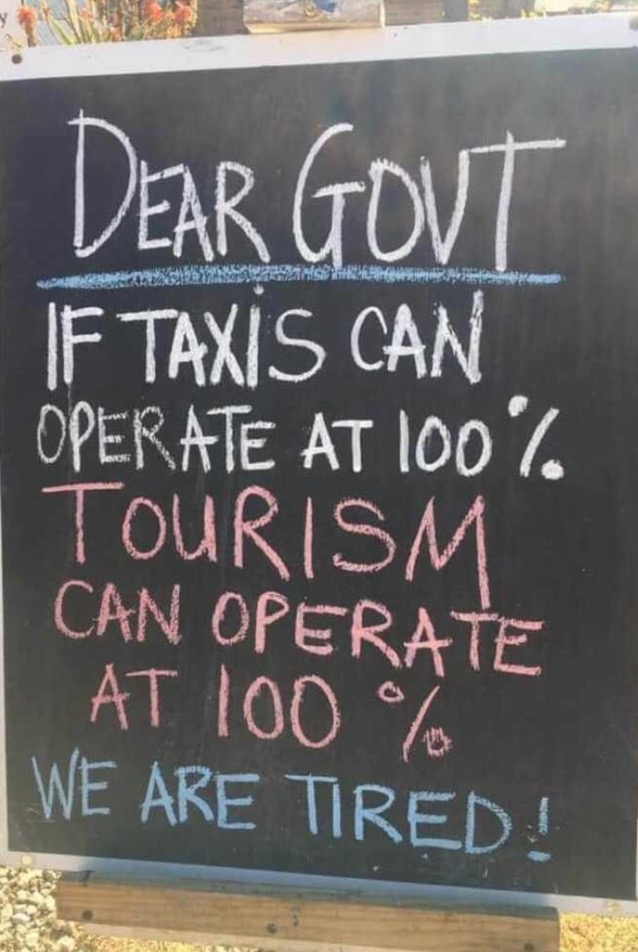 DEAR GOVT
IF TAXIS CAN
OPERATE AT 100%
TOURISM
CAN OPERATE
AT 100%
WE ARE TIRED!